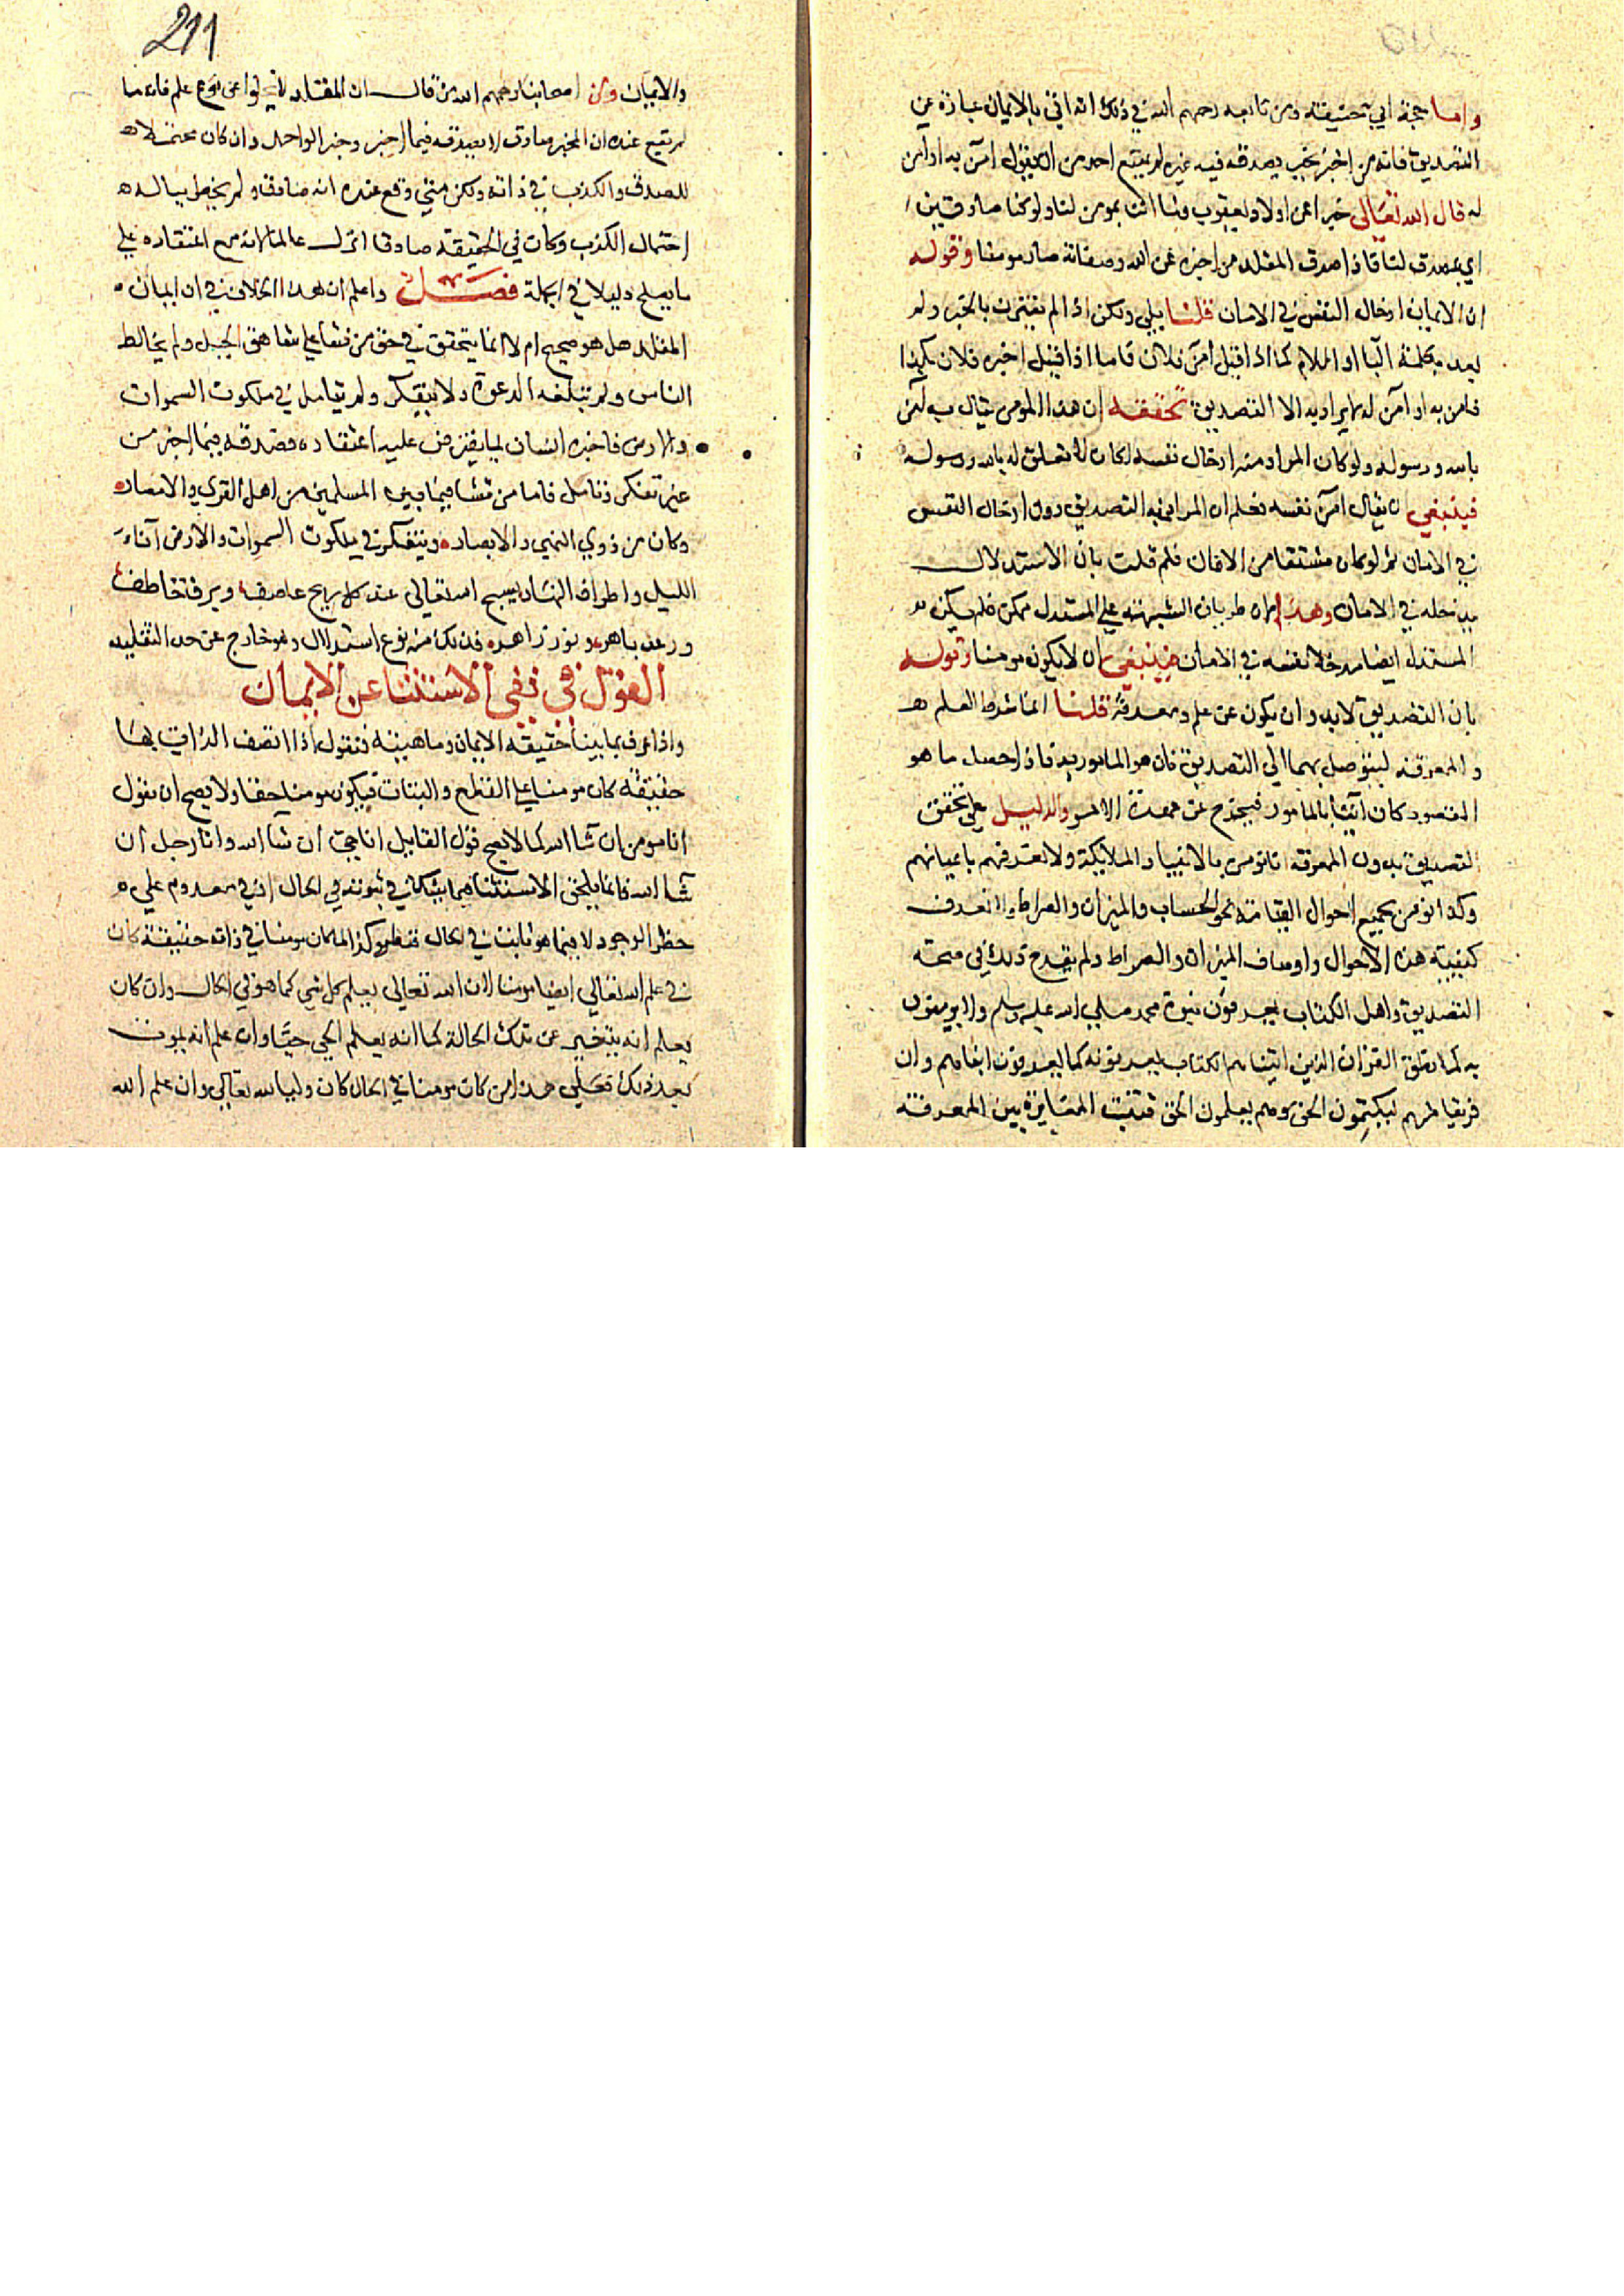 واما حجة ابي حنيفة ومن تابعه رحمهم الله في ذلك انه اتى بالايمان عبارة عن
التصديق فانه من اخبر بخبر يصدقه فيه غيره لم يمتنع احد من ان يقول امن به او امن
له قال الله تعالى خبرا عن اولاد يعقوب وما انت بمومن لنا ولو كنا صادقين
اي بمصدق لنا فاذا صدق المقلد من اخبره عن الله وصفاته صار مومنا وقوله
ان الايمان ادخال النفس في الامان قلنا بلى ولكن اذا لم يقترن بالخبر ولم
يعد بكلمة البا او اللام كما اذا قيل امن فلان فاما اذا قيل اخبره فلان بكذا
فامن به او آمن له لا يراد به الا التصديق تحققه ان هذا المومن يقال به آمن
بالله ورسوله ولو كان المراد منه ادخال نفسه لكان لا تعلق له بالله ورسوله
فينبغي ان يقال آمن نفسه فعلم ان المراد به التصديق دون ادخال النفس
في الامان ثم لو كان مشتقا من الامان فلم قلت بان الاستدلال
يدخله في الامان وهذا لان طريان الشبهة على المستدل ممكن فلم يكن
المستدل ايضا مدخلا نفسه في الامان فينبغي ان لا يكون مومنا وقوله
بان التصديق لابد وان يكون عن علم ومعرفة قلنا انما شرط العلم
والمعرفة ليتوصل بهما الى التصديق فان هو المامور به فاذا حصل ما هو
المقصود كان آتيا بالمامور فيخرج عن عهدة الامر والدليل على تحقق
التصديق بدون المعرفة انا نومن بالانبيا والملايكة ولا نعرفهم باعيانهم
وكذا نومن بجميع احوال القيامة نحو الحساب والميزان والصراط ولا نعرف
كيفية هذه الاحوال واوصاف الميزان والصراط ولم يقدح ذلك في صحة
التصديق واهل الكتاب يعرفون نبوة محمد صلى الله عليه وسلم ولا يومنون
به كما نطق القران الذين اتيناهم الكتاب يعرفونه كما يعرفون ابناهم وان
فريقا منهم ليكتمون الحق وهم يعلمون الحق فثبت المغايرة بين المعرفة
211
والايمان ومن اصحابنا رحمهم الله من قال ان المقلد لا يخلوا عن نوع علم فانه ما
لم يقع عنده ان المخبر صادق لا يصدقه فيما اخبر وخبر الواحد وان كان محتملا
للصدق والكذب في ذاته ولكن متى وقع عنده انه صادق ولم يخطر بباله
احتمال الكذب وكان في الحقيقة صادقا انزل عالما لانه مع اعتقاده على
ما يصلح دليلا في الجملة فصل واعلم ان هذا الخلاف في ان ايمان
المقلد هل هو صحيح ام لا انما يتحقق في حق من نشأ على شاهق الجبل ولم يخالط
الناس ولم تبلغه الدعوة ولا يتفكر ولم يتامل في ملكوت السموات
والارض فاخبره انسان بما يفترض عليه اعتقاده فصدقه فيما اخبر من
غير تفكر وتامل فاما من نشا فيما بين المسلمين من اهل القرى والامصار
وكان من ذوي النهى والابصار ويتفكر في ملكوت السموات والارض آناء
الليل واطراف النهار يسبح الله تعالى عند كل ريح عاصف وبرق خاطف
ورعد باهر ونور زاهر فذلك منه نوع استدلال وهو خارج عن حد التقليد
القول في نفي الاستثنا عن الايمان
واذا عرف بما بينا حقيقة الايمان وماهيته فنقول اذا اتصف الذات بها
حقيقة كان مومنا على القطع والبتات فيكون مومنا حقا ولا يصح ان يقول
انا مومن ان شا الله كما لا يصح قول القايل انا حي ان شا الله وانا رجل ان
شا الله فانما يلحق الاستثنا فيما يشك في ثبوته في الحال او في معدوم على
خطر الوجود لا فيما هو ثابت في الحال قطعا وكذا لما كان مومنا في ذاته حقيقة كان
في علم الله تعالى ايضا مومنا لان الله تعالى يعلم كل شي كما هو في الحال وان كان
يعلم انه يتغير عن تلك الحالة كما انه يعلم الحي حيا وان علم انه يموت
بعد ذلك فعلى هذا من كان مومنا في الحال كان وليا لله تعالى وان علم الله